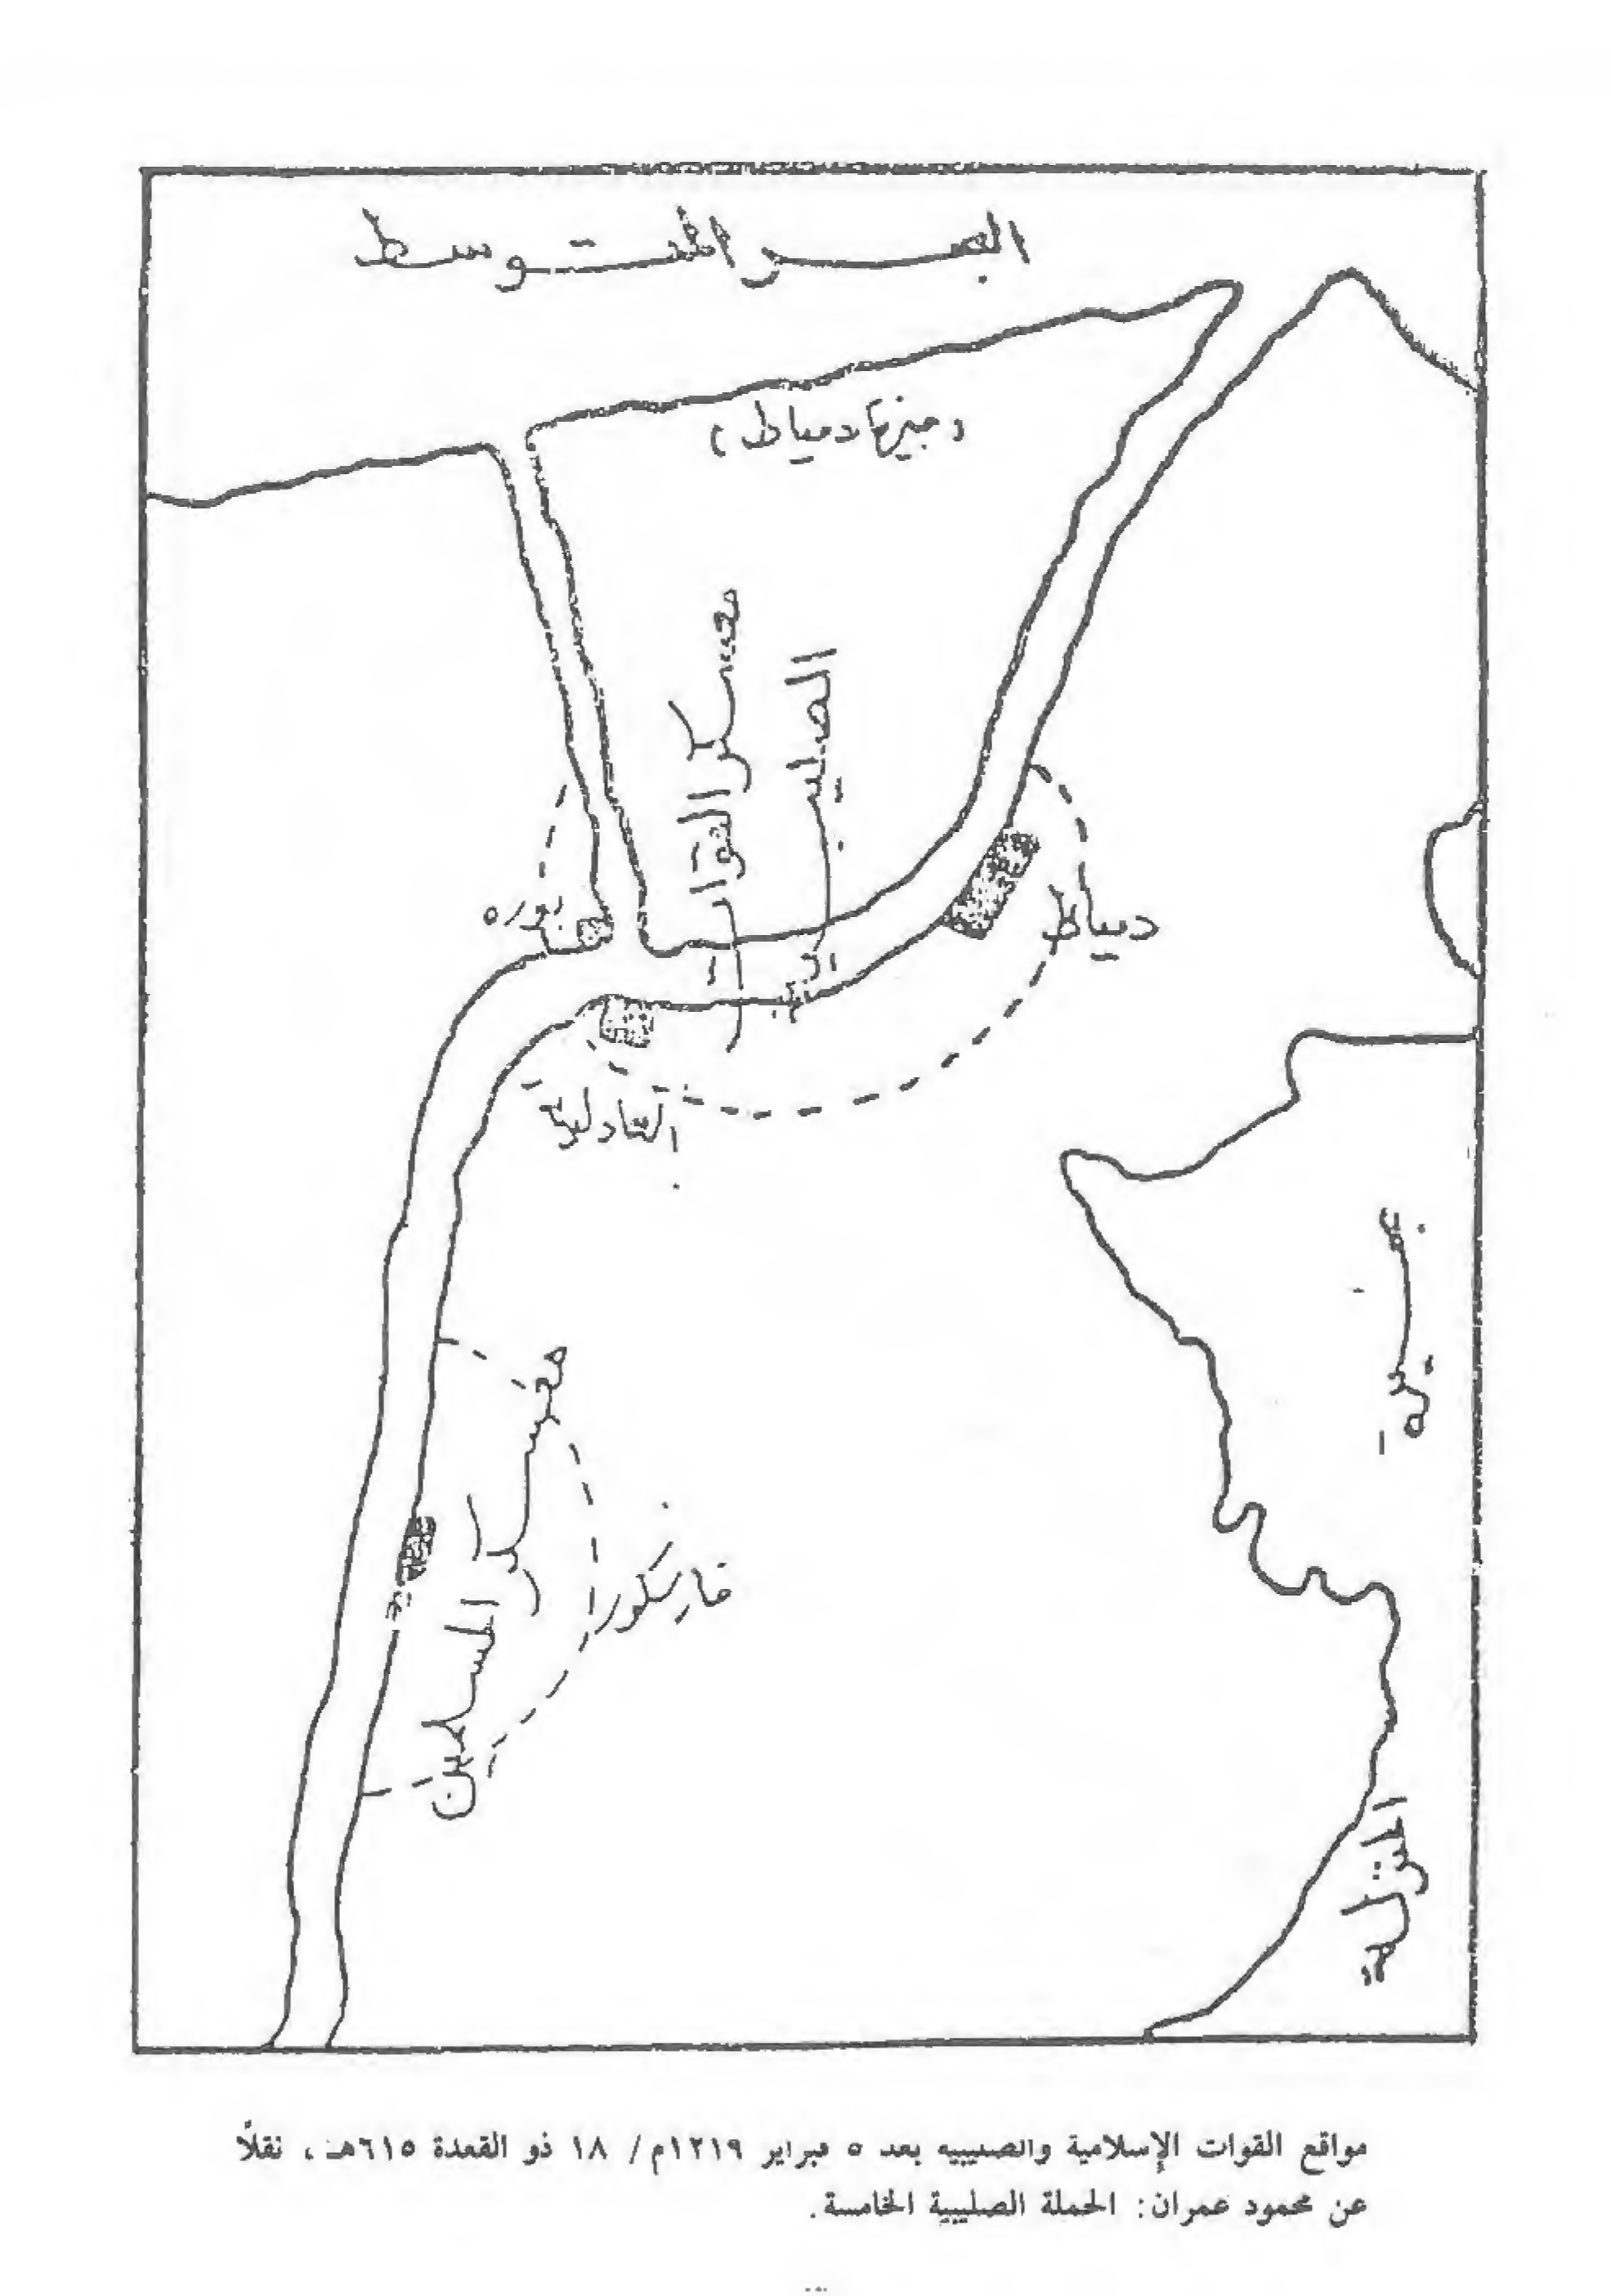 البحر المتوسط
(جيزة دمياط)
معسكر القوات
الصليبية
بوره
دمياط
العادلية
بحيرة
المنزلة
معسكر المسلمين
فارسكور
مواقع القوات الإسلامية والصليبيه بعد ٥ فبراير ١٢١٩م/ ١٨ ذو القعدة ٦١٥هـ ، نقلًا
عن محمود عمران: الحملة الصليبية الخامسة.